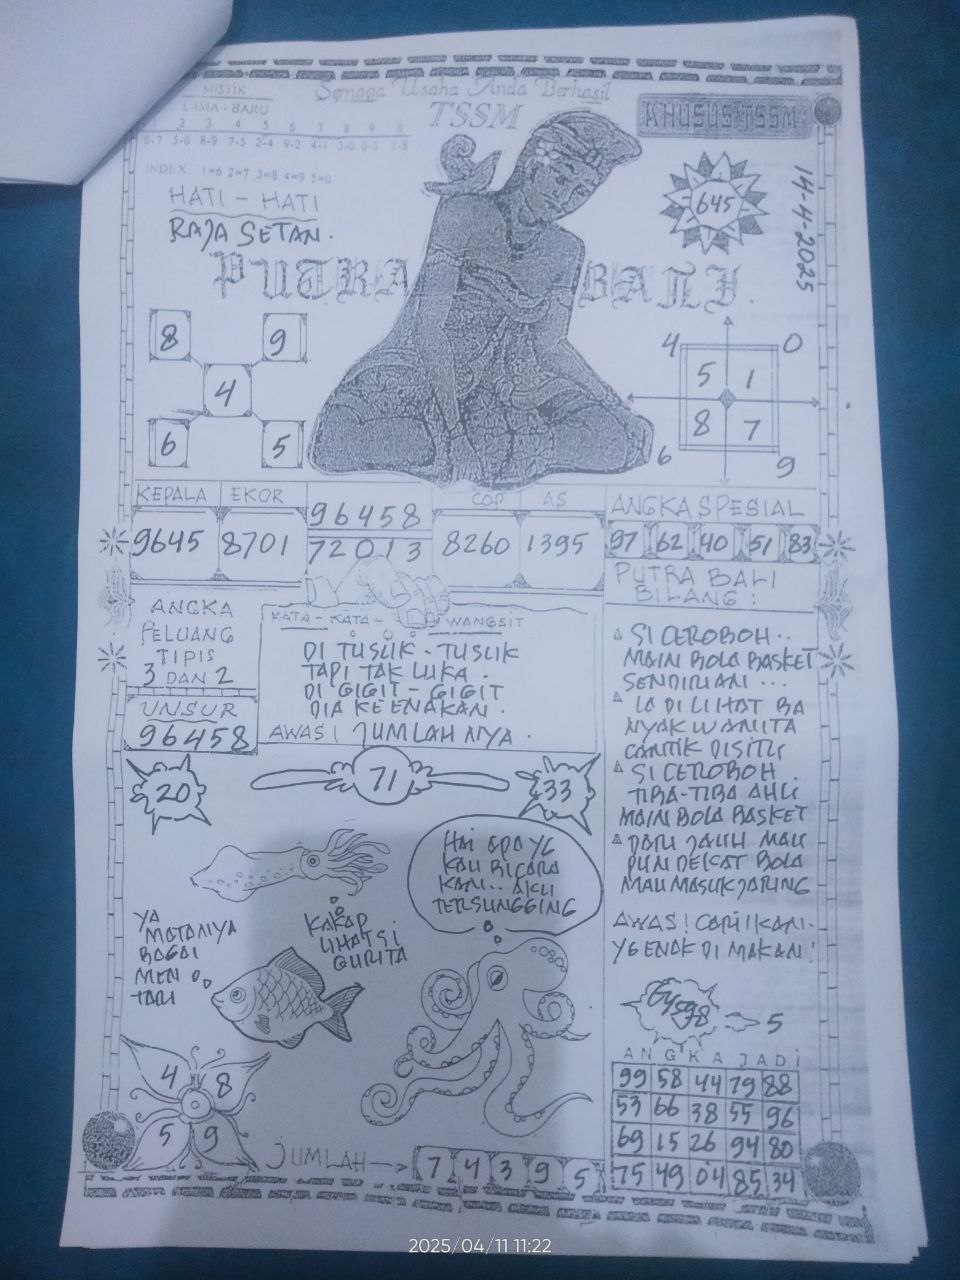 MISTIK
LAMA - BARU
2 3 4 5 6 7 8 9 0
0-7 5-6 8-9 7-5 2-4 9-2 4-1 3-0 6-3 1-8
INDEX 1=6 2=7 3=8 4=9 5=0
Semoga Usaha Anda Berhasil
TSSM
KHUSUS TSSM
HATI - HATI
RAJA SETAN.
645
14-4-2025
PUTRA BALI.
8 9
4
6 5
4 0
5 1
8 7
6 9
KEPALA EKOR
9645 8701
96458
72013
COP AS
8260 1395
ANGKA SPESIAL
97 62 40 51 83
ANGKA
PELUANG
TIPIS
3 DAN 2
UNSUR
96458
KATA - KATA - WANGSIT
DI TUSUK - TUSUK
TAPI TAK LUKA.
DI GIGIT - GIGIT
DIA KEENAKAN.
AWAS! JUMLAH NYA.
PUTRA BALI
BILANG:
SI CEROBOH..
MAIN BOLA BASKET
SENDIRIAN ...
IA DI LIHAT BA
NYAK WANITA
CANTIK DISITU
SI CEROBOH.
TIBA-TIBA AHLI
MAIN BOLA BASKET
DARI JAUH MAU
PUN DEKAT BOLA
MAU MASUK JARING
AWAS! CARI IKAN.
YG ENAK DI MAKAN!
20
71
33
HAI APA YG
KAU BICARA
KAN.. AKU
TERSUNGGING
YA
MATANYA
BAGAI
MEN
TARI
KAKAP
LIHAT SI
GURITA
5
4 8
5 9
JUMLAH 7 4 3 9 5
ANGKA JADI
99 58 44 79 88
53 66 38 55 96
69 15 26 94 80
75 49 04 85 34
2025/04/11 11:22